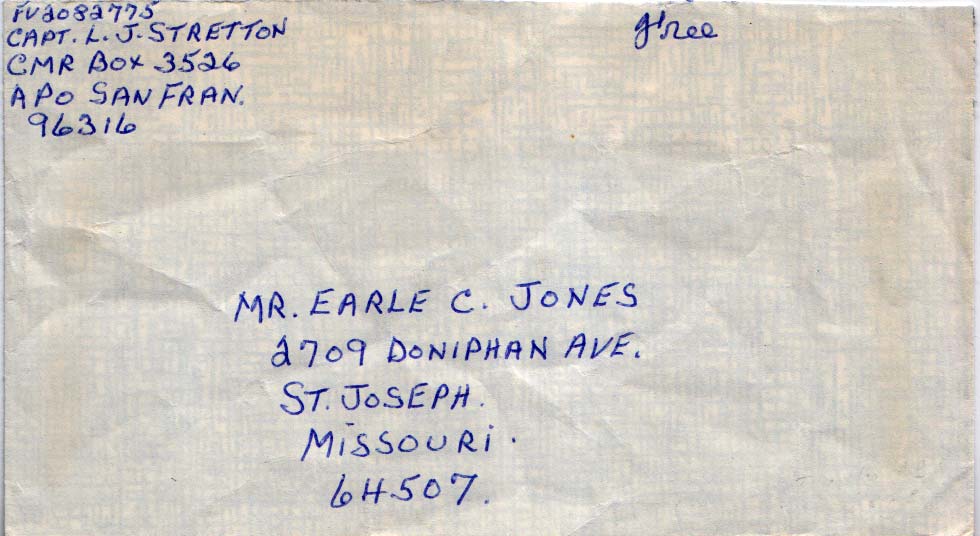 FV2082775
CAPT. L. J. STRETTON
CMR BOX 3526
APO SAN FRAN.
96316
free
MR. EARLE C. JONES
2709 DONIPHAN AVE.
ST. JOSEPH.
MISSOURI.
64507.